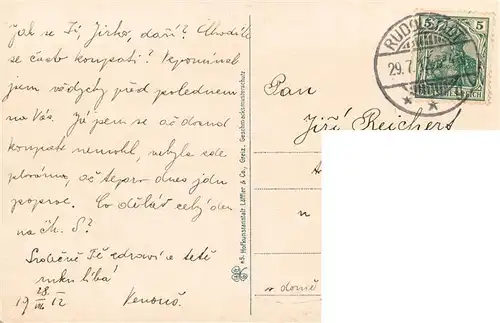 Jak se Ti, Jirko, daří? Chodíte
se často koupati? Vzpomínal
jsem vždycky před polednem
na Vás. Já jsem se až dosud
koupat nemohl, nebyla zde
plovárna, až teprv dnes jdu
poprvé. Co děláš celý den
na
Srdečně Tě zdraví a tetě
ruku líbá
19 28./VII. 12
RUDOLSTADT
29.7.12
5
Pan
Jiří Reichert
v domě
Hofkunstanstalt Löffler & Co., Greiz. Geschmacksmusterschutz